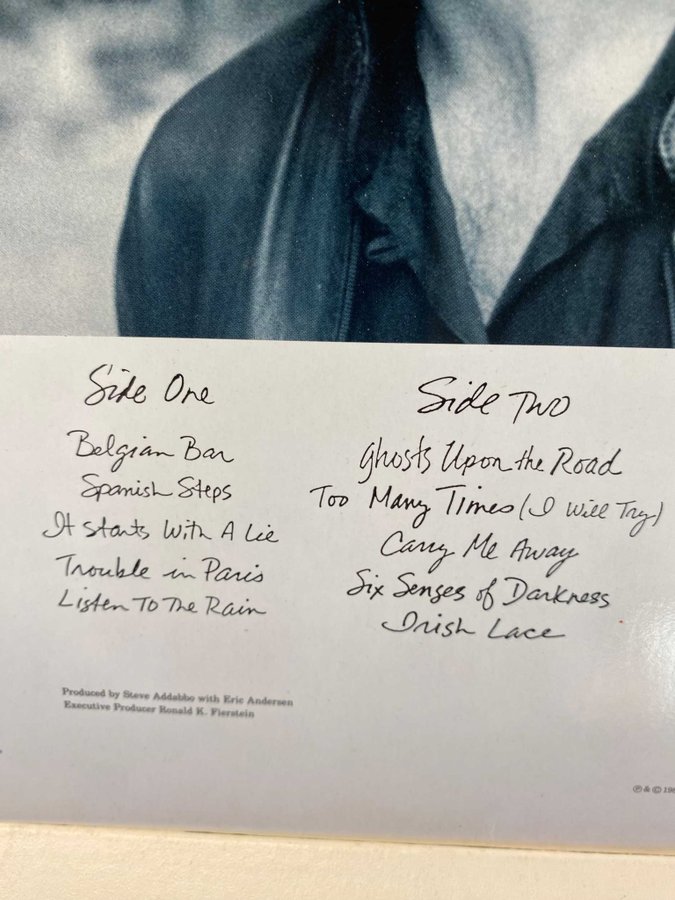 Side One
Belgian Bar
Spanish Steps
It Starts With A Lie
Trouble in Paris
Listen To The Rain
Side Two
Ghosts Upon the Road
Too Many Times (I Will Try)
Carry Me Away
Six Senses of Darkness
Irish Lace
Produced by Steve Addabbo with Eric Andersen
Executive Producer Ronald K. Fierstein
℗ & ©